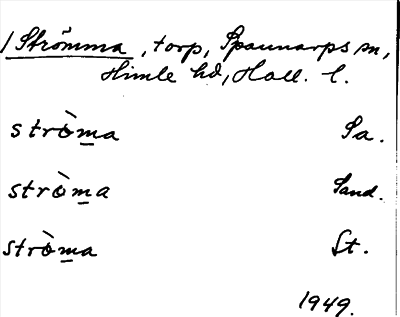 / Strömma, torp, Spannarps sn,
Himle hd, Hall. l.
strò̱ma Sa.
strò̱ma Sand.
strò̱ma St.
1949.